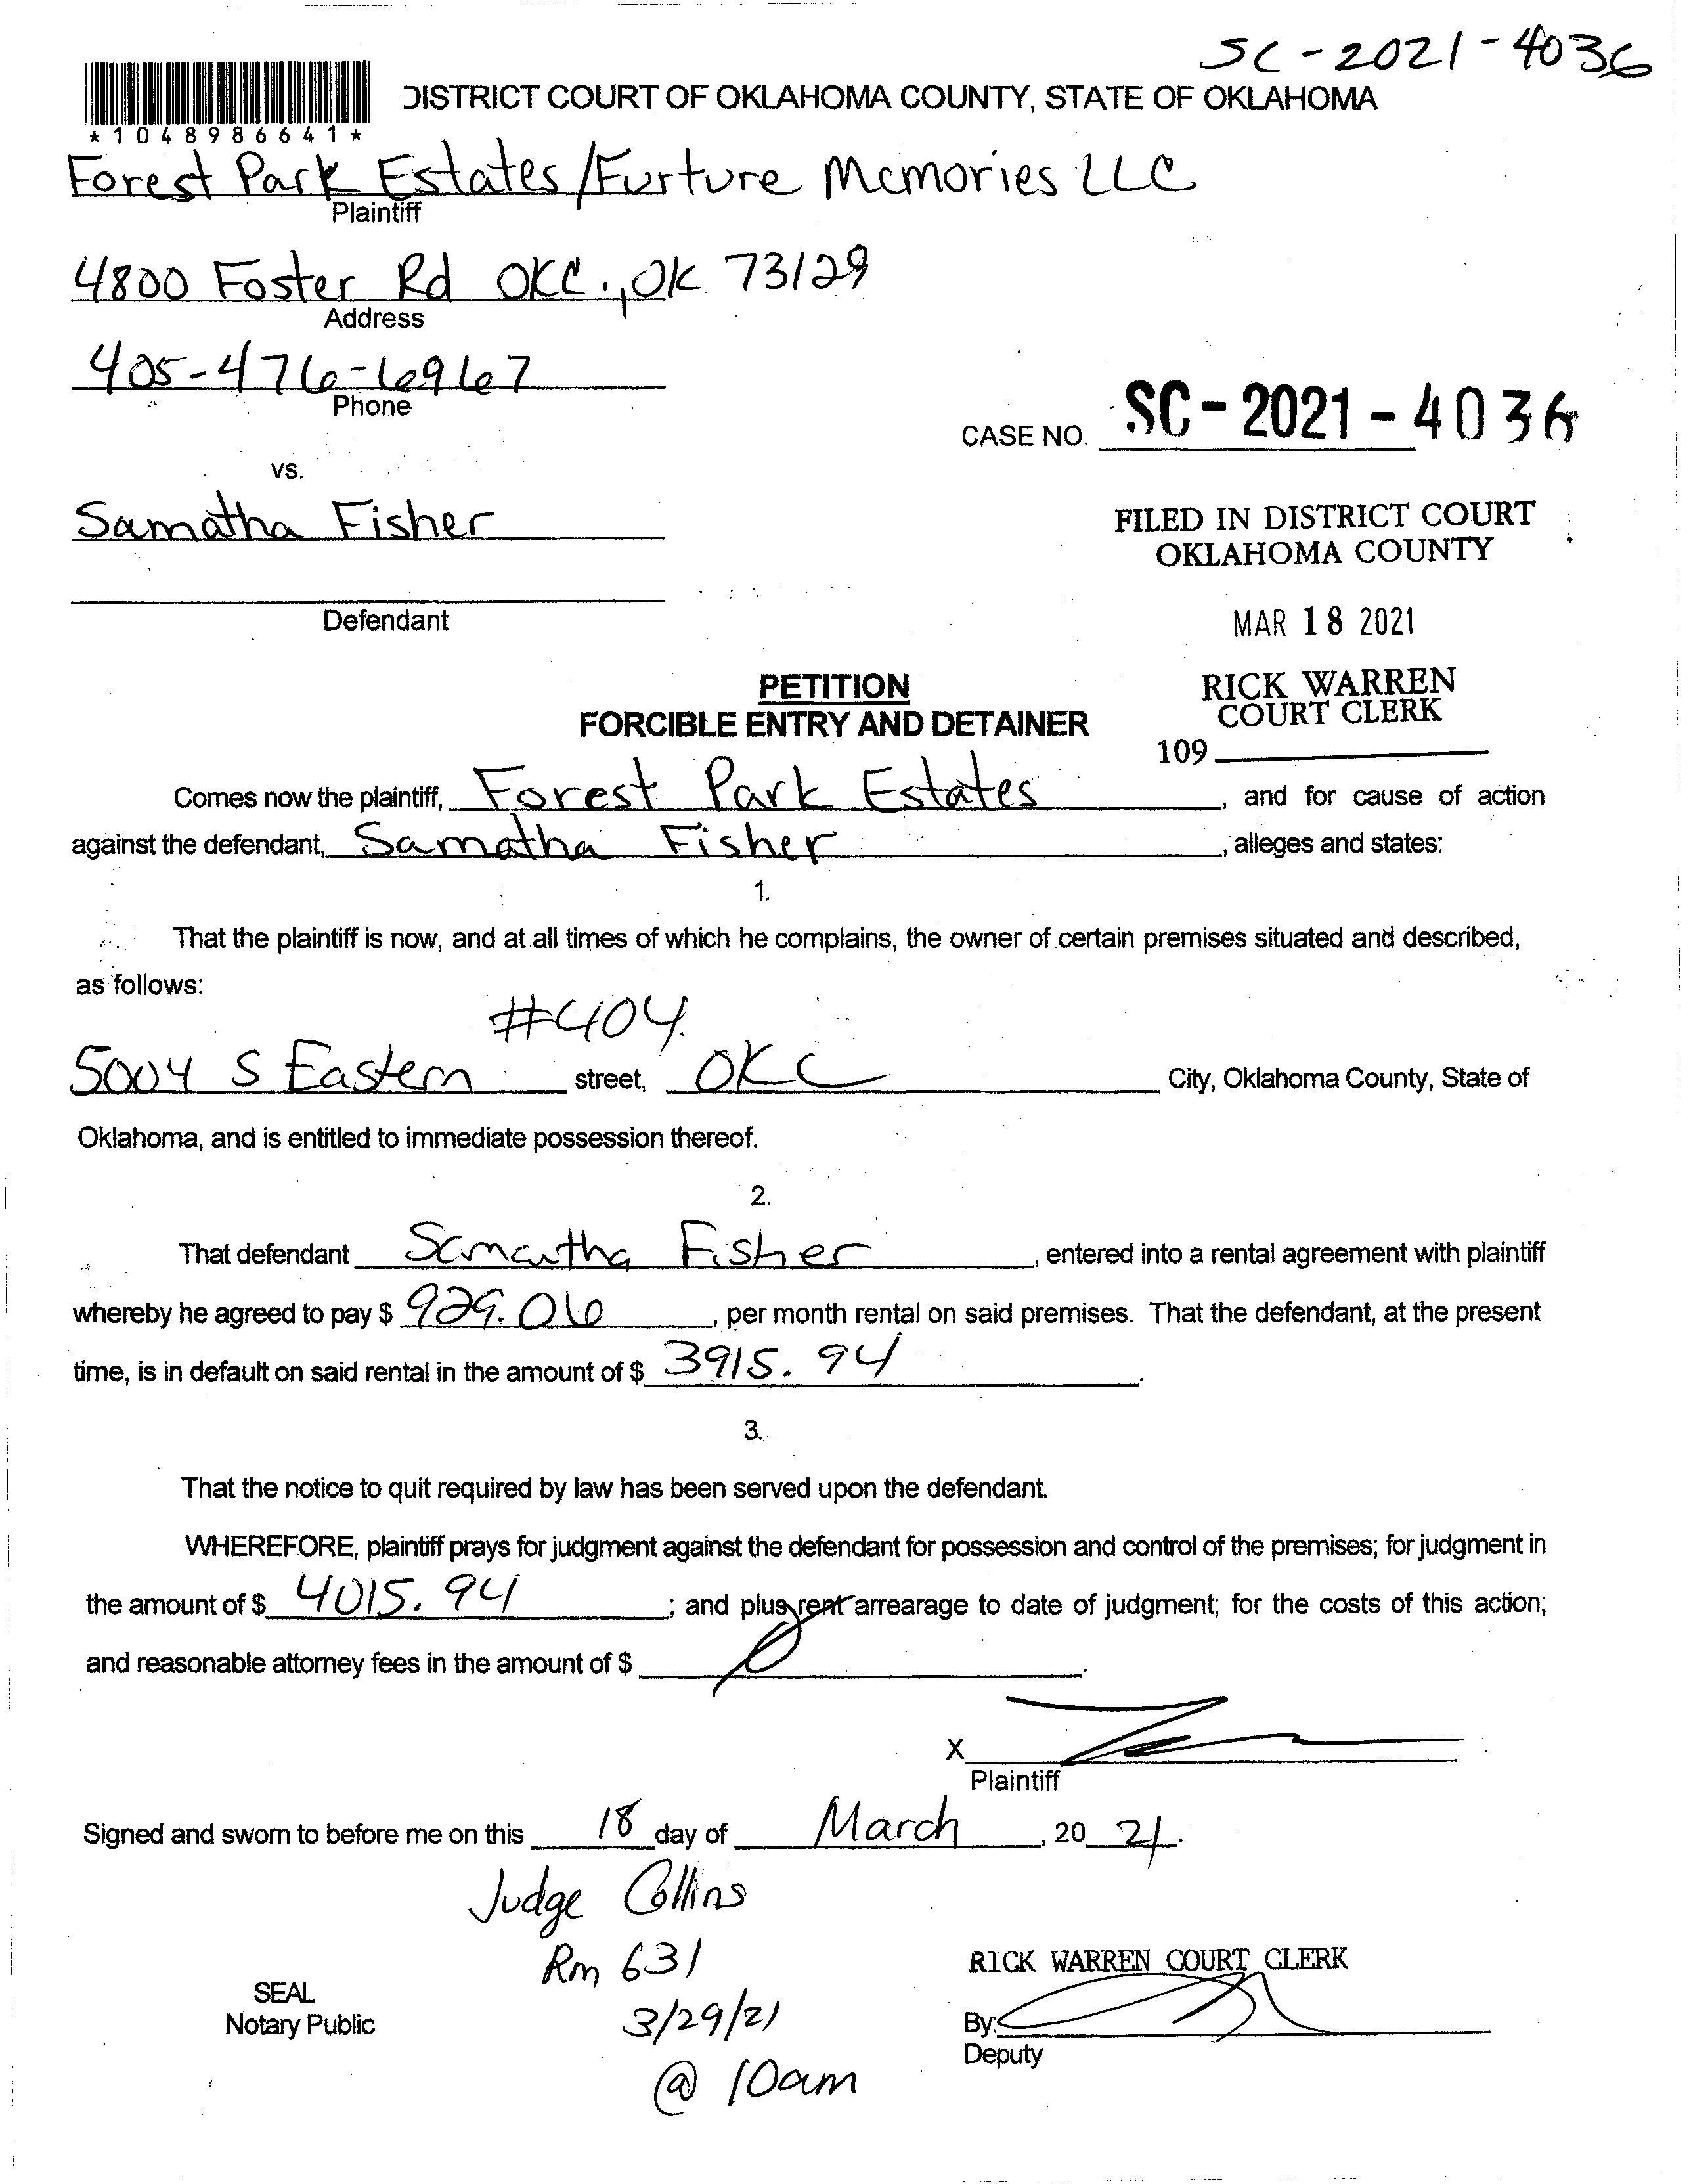 SC-2021-4036
DISTRICT COURT OF OKLAHOMA COUNTY, STATE OF OKLAHOMA
*1048986641*
Forest Park Estates/Furture Memories LLC
Plaintiff
4800 Foster Rd OKC., OK 73129
Address
405-476-6967
Phone
CASE NO. SC-2021-4036
vs.
Samatha Fisher
FILED IN DISTRICT COURT
OKLAHOMA COUNTY
Defendant
MAR 18 2021
PETITION
RICK WARREN
COURT CLERK
FORCIBLE ENTRY AND DETAINER
109
Comes now the plaintiff, Forest Park Estates, and for cause of action
against the defendant, Samatha Fisher, alleges and states:
1.
That the plaintiff is now, and at all times of which he complains, the owner of certain premises situated and described,
as follows:
#404.
5004 S Eastern street, OKC City, Oklahoma County, State of
Oklahoma, and is entitled to immediate possession thereof.
2.
That defendant Samantha Fisher, entered into a rental agreement with plaintiff
whereby he agreed to pay $ 929.06, per month rental on said premises. That the defendant, at the present
time, is in default on said rental in the amount of $ 3915.94.
3.
That the notice to quit required by law has been served upon the defendant.
WHEREFORE, plaintiff prays for judgment against the defendant for possession and control of the premises; for judgment in
the amount of $ 4015.94; and plus rent arrearage to date of judgment; for the costs of this action;
and reasonable attorney fees in the amount of $ 0.
X
Plaintiff
Signed and sworn to before me on this 18 day of March, 2021.
Judge Collins
Rm 631
RICK WARREN COURT CLERK
SEAL
Notary Public
3/29/21
By:
Deputy
@ 10am